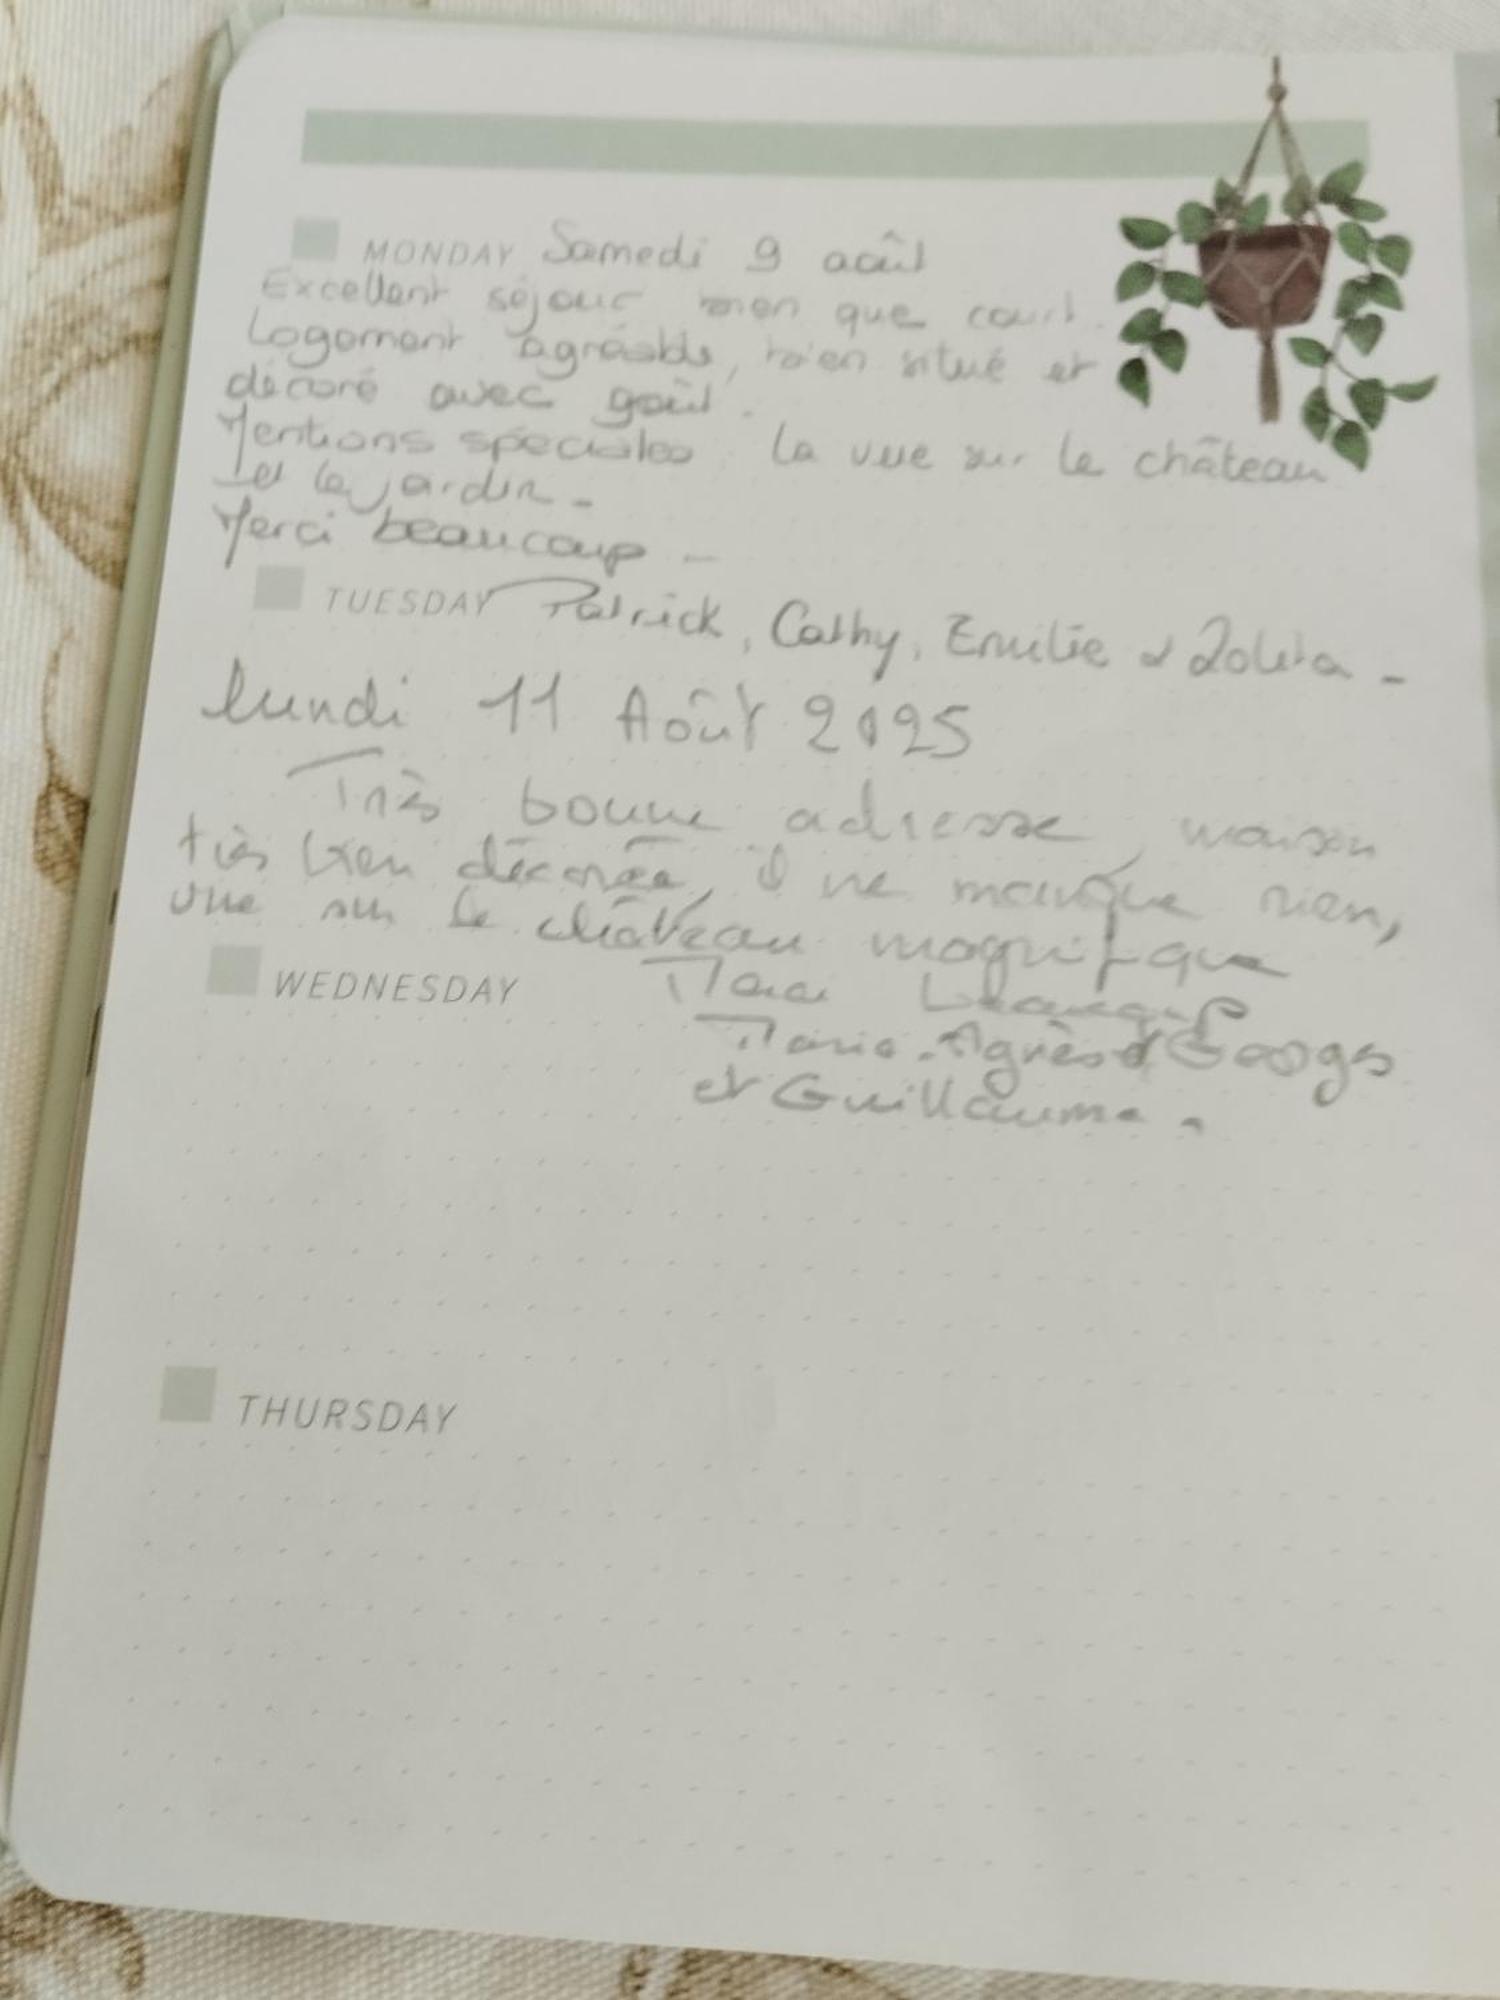 MONDAY Samedi 9 août
Excellent séjour bien que court.
Logement agréable, bien situé et
décoré avec goût.
Mentions spéciales : la vue sur le château
et le jardin -
Merci beaucoup -
TUESDAY Patrick, Cathy, Emilie &
lundi 11 Août 2025
Très bonne adresse, maison
très bien décorée, il ne manque rien,
vue sur le château magnifique
WEDNESDAY Merci beaucoup
Marie-Agnès
et Guillaume.
THURSDAY